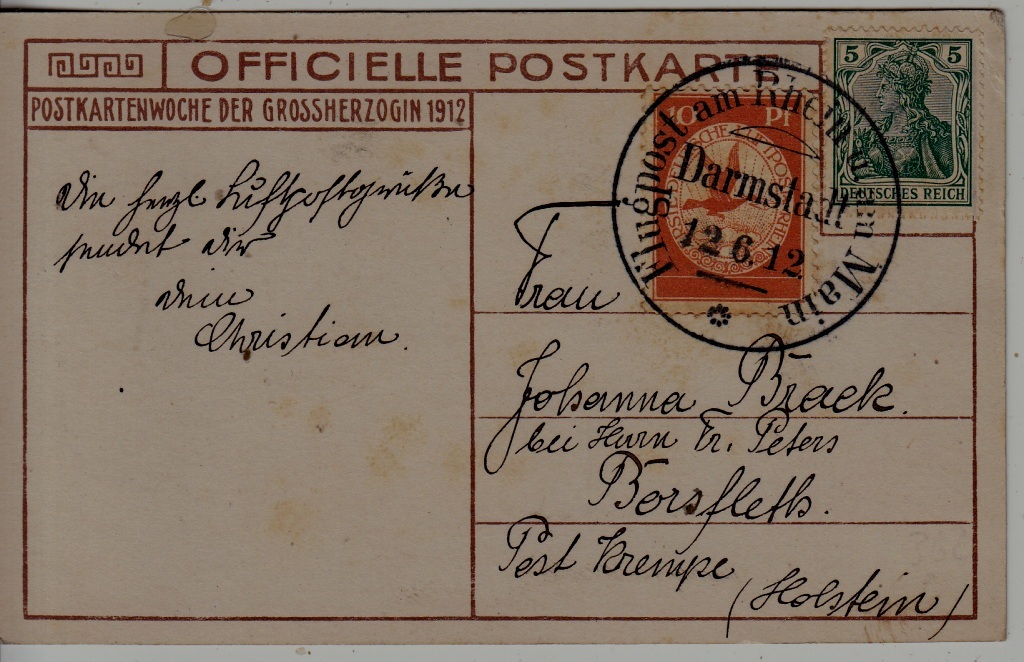 OFFICIELLE POSTKARTE
POSTKARTENWOCHE DER GROSSHERZOGIN 1912
5 5
DEUTSCHES REICH
10 Pf
Flugpost am Rhein u. am Main
Darmstadt
12.6.12
Die herzl Luftpostgrüße
sendet dir
dein
Christian.
Frau
Johanna Braek.
bei Herrn Fr. Peters
Borsfleth.
Post Krempe
(Holstein)